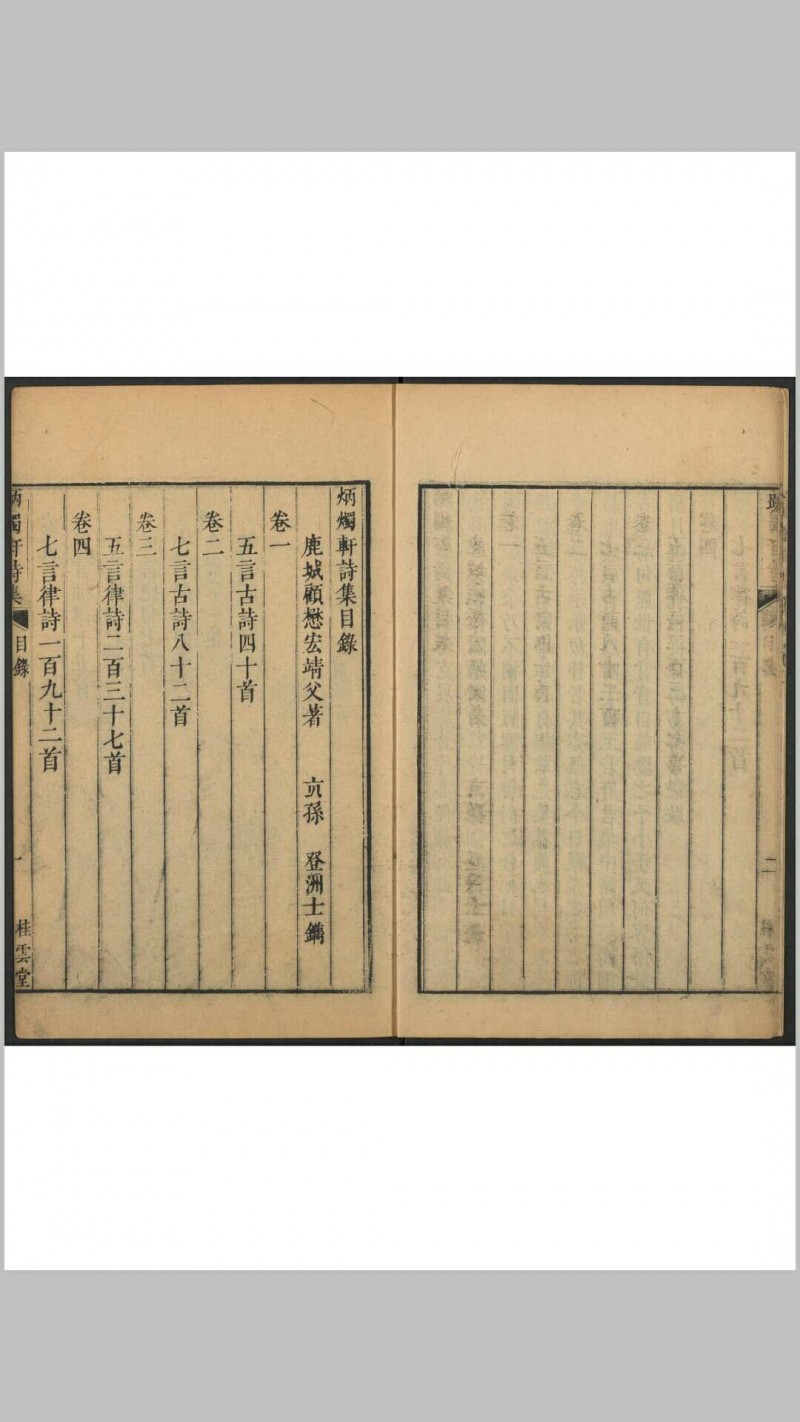 炳燭軒詩集目錄
鹿城顧懋宏靖父著　亢孫　登洲士鐫
卷一
五言古詩四十首
卷二
七言古詩八十二首
卷三
五言律詩二百三十七首
卷四
七言律詩一百九十二首
炳燭軒詩集 目錄 一 桂雲堂
二